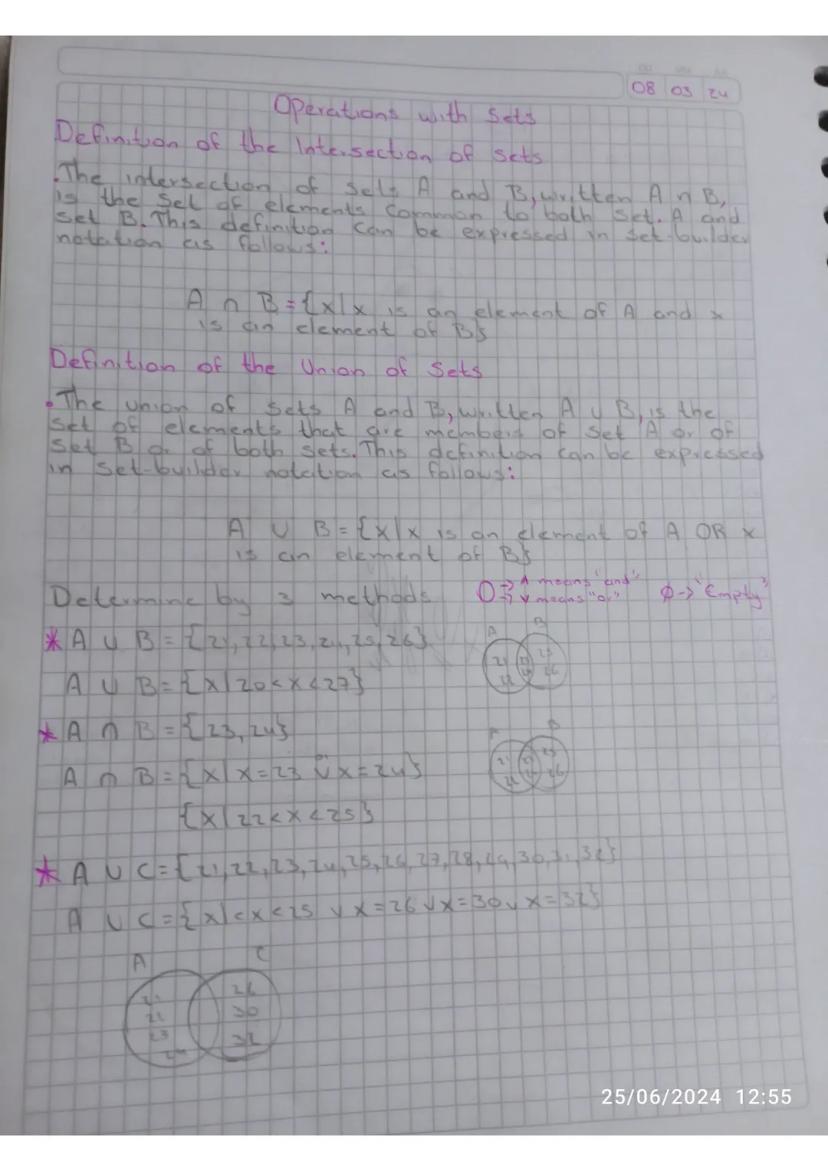 08 03 24
Operations with Sets
Definition of the Intersection of Sets
.The intersection of sets A and B, written A ∩ B,
is the set of elements common to both set. A and
set B. This definition can be expressed in set-builder
notation as follows:
A ∩ B = {x|x is an element of A and x
is an element of B}
Definition of the Union of Sets
•The union of sets A and B, written A ∪ B, is the
set of elements that are members of set A or of
set B or of both sets. This definition can be expressed
in set-builder notation as follows:
A ∪ B = {x|x is an element of A OR x
is an element of B}
Determine by 3 methods
∧ means "and"
∨ means "or"
∅ -> "Empty"
* A ∪ B = {21, 22, 23, 24, 25, 26}
A B
21 22 23 24 25 26
A ∪ B = {x|20 < x < 27}
* A ∩ B = {23, 24}
A B
21 22 23 24 25 26
A ∩ B = {x|x=23 ∨ x=24}
{x|22 < x < 25}
* A ∪ C = {21, 22, 23, 24, 25, 26, 27, 28, 29, 30, 31, 32}
A ∪ C = {x| < x < 25 ∨ x=26 ∨ x=30 ∨ x=32}
A C
21 26
22 30
23 32
24
25/06/2024 12:55